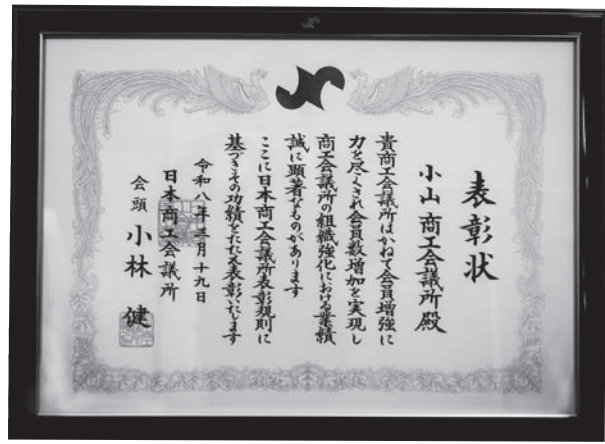 表彰状
小山商工会議所殿
貴商工会議所はかねて会員増強に
力を尽くされ会員数増加を実現し
商工会議所の組織強化における業績
誠に顕著なものがあります
ここに日本商工会議所表彰規則に
基づきその功績をたたえ表彰いたします
令和八年三月十九日
日本商工会議所
会頭 小林 健